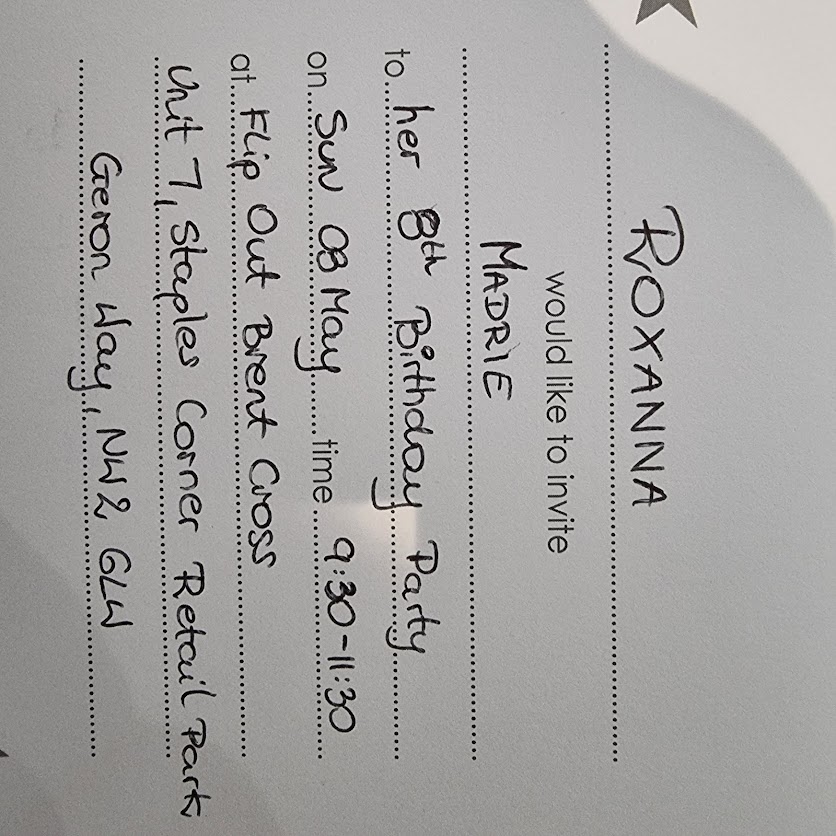 ROXANNA
would like to invite
MADRIE
to her 8th Birthday Party
on Sun 08 May time 9:30-11:30
at Flip Out Brent Cross
Unit 7, Staples Corner Retail Park
Geron Way, NW2 6LW